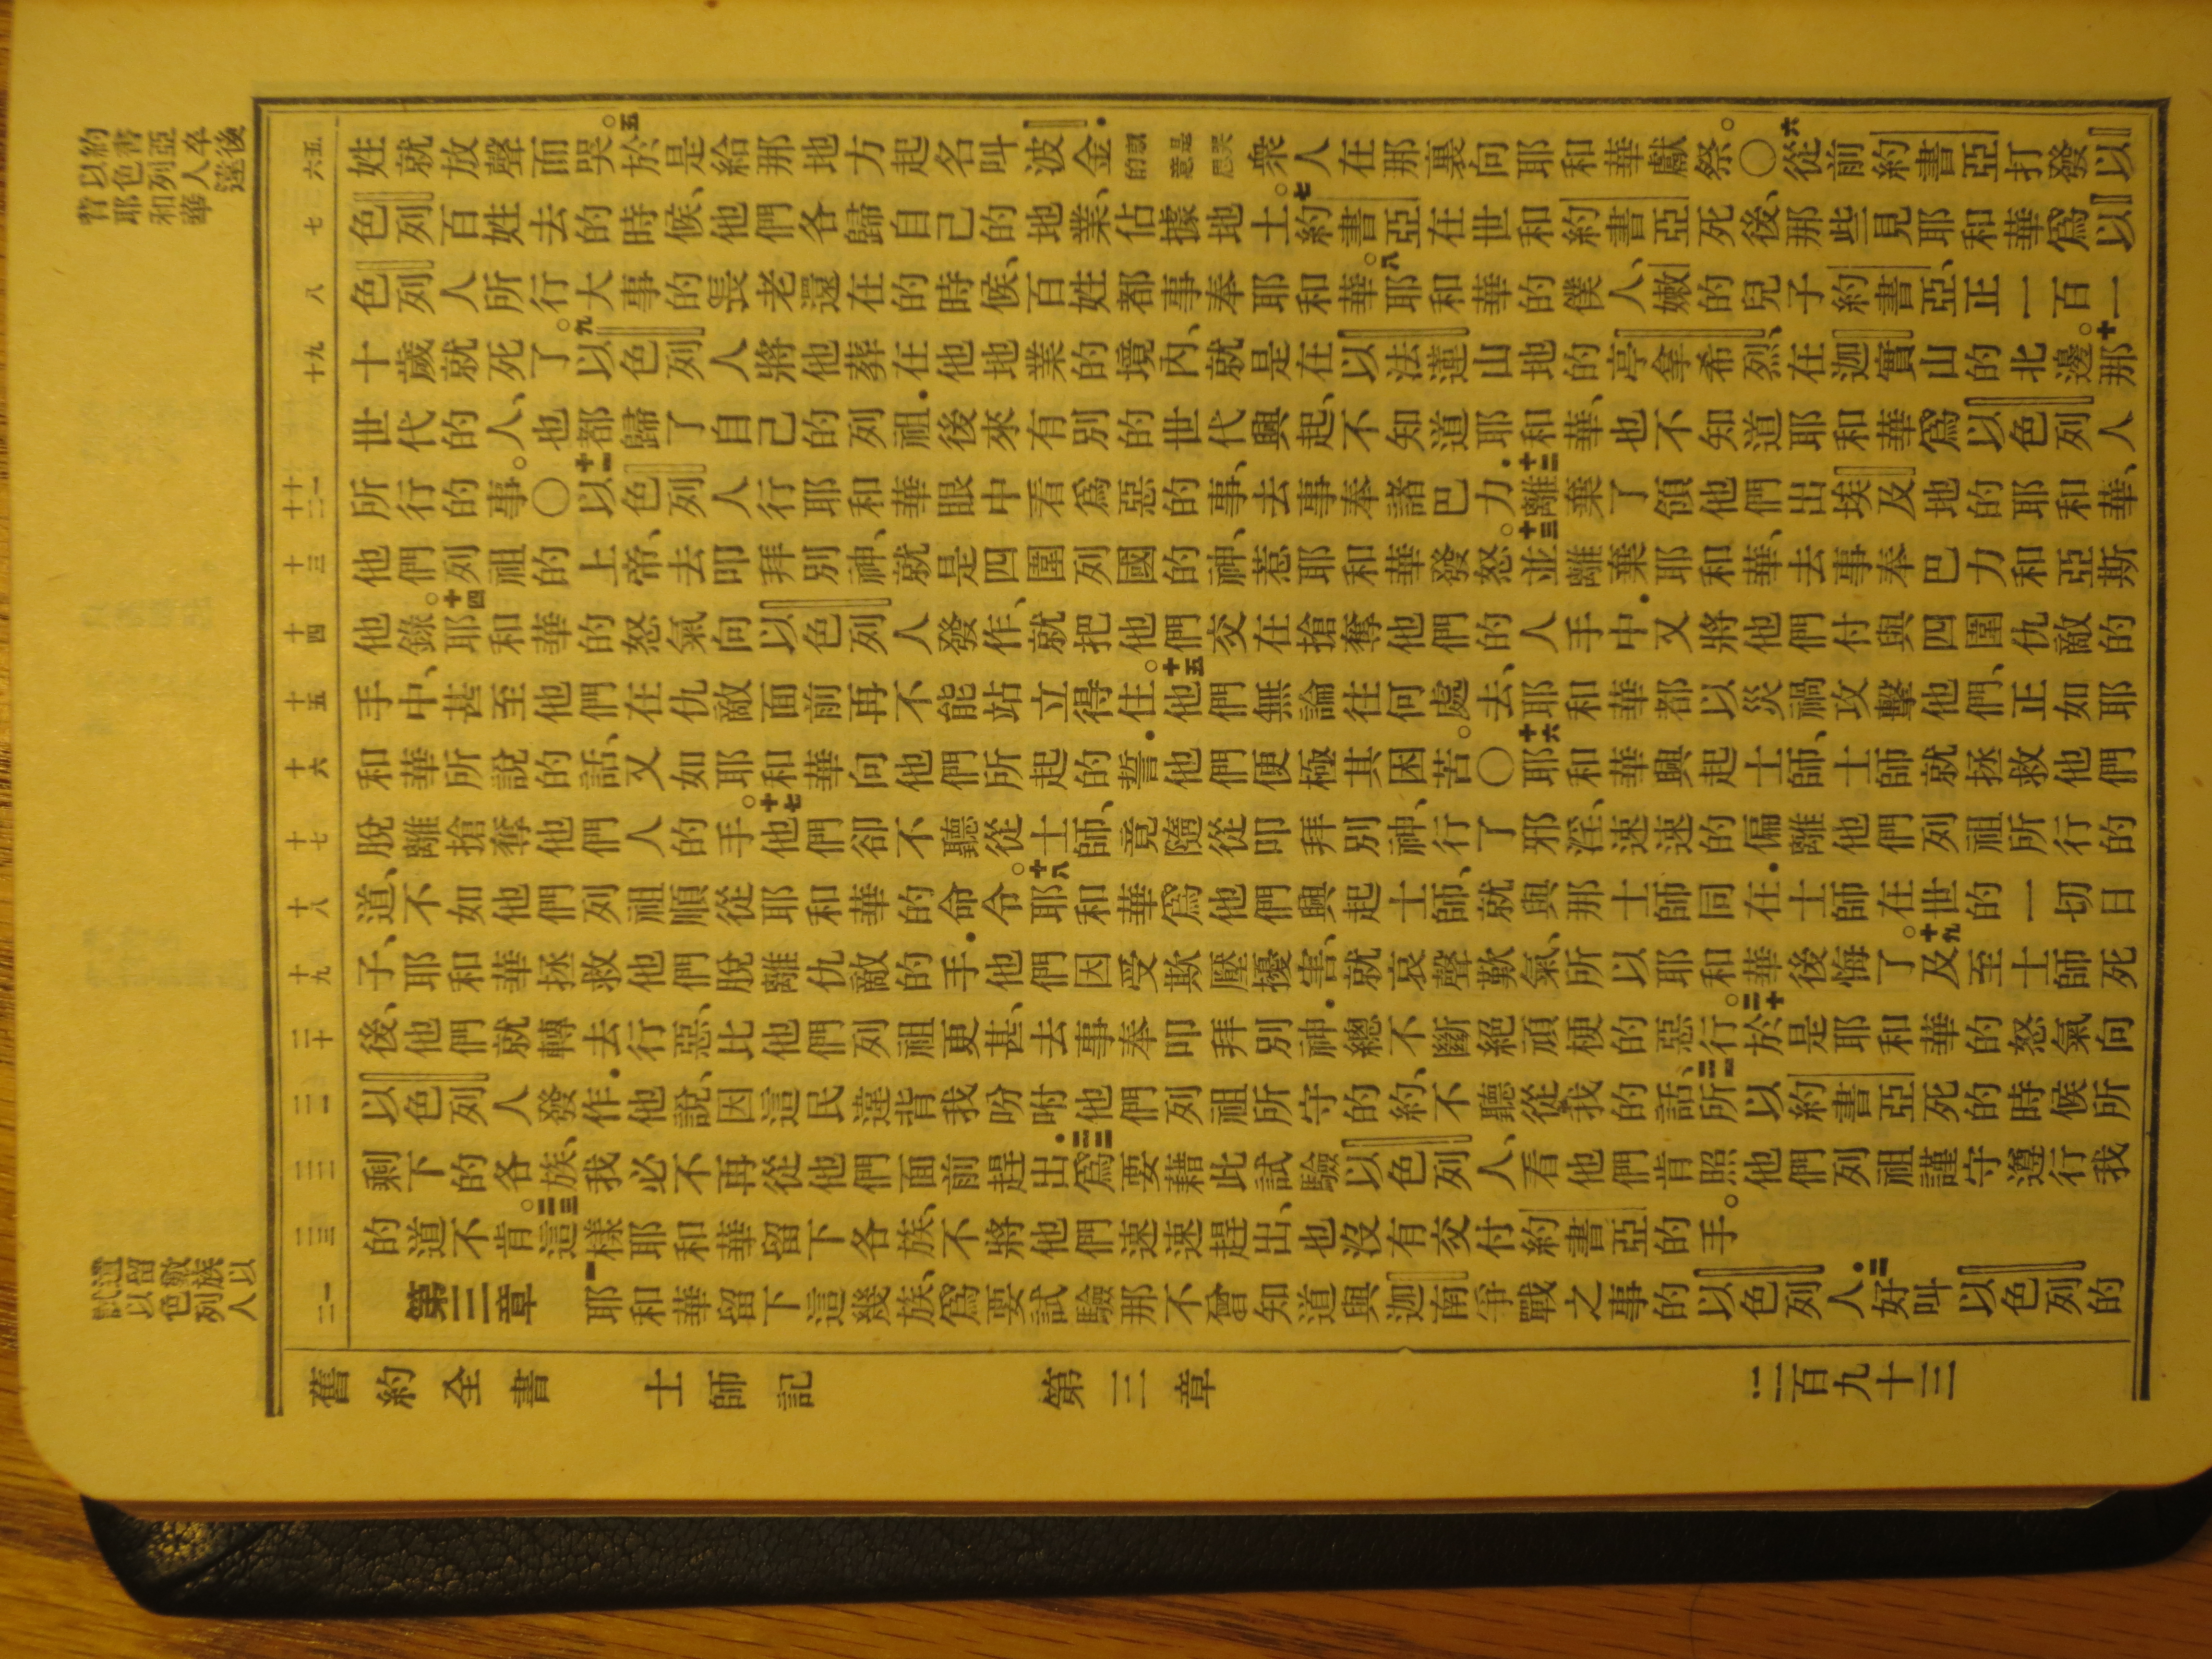 約書亞卒後
以色列人違
背耶和華
五六
姓就放聲而哭。五於是給那地方起名叫波金．就是哭的意思眾人在那裏向耶和華獻祭。〇六從前約書亞打發以
七
色列百姓去的時候、他們各歸自己的地業、佔據地土。七約書亞在世和約書亞死後、那些見耶和華爲以
八
色列人所行大事的長老還在的時候、百姓都事奉耶和華。八耶和華的僕人、嫩的兒子約書亞、正一百一
九十
十歲就死了。九以色列人將他葬在他地業的境內、就是在以法蓮山地的亭拿希烈、在迦實山的北邊。十那
世代的人、也都歸了自己的列祖．後來有別的世代興起、不知道耶和華、也不知道耶和華爲以色列人
十一十二
所行的事。〇十一以色列人行耶和華眼中看爲惡的事、去事奉諸巴力．十二離棄了領他們出埃及地的耶和華、
十三
他們列祖的上帝、去叩拜別神、就是四圍列國的神、惹耶和華發怒。十三並離棄耶和華、去事奉巴力和亞斯
十四
他錄。十四耶和華的怒氣向以色列人發作、就把他們交在搶奪他們的人手中．又將他們付與四圍仇敵的
十五
手中、甚至他們在仇敵面前再不能站立得住。十五他們無論往何處去、耶和華都以災禍攻擊他們、正如耶
十六
和華所說的話、又如耶和華向他們所起的誓．他們便極其困苦。〇十六耶和華興起士師、士師就拯救他們
十七
脫離搶奪他們人的手。十七他們卻不聽從士師、竟隨從叩拜別神、行了邪淫、速速的偏離他們列祖所行的
十八
道、不如他們列祖順從耶和華的命令。十八耶和華爲他們興起士師、就與那士師同在．士師在世的一切日
十九
子、耶和華拯救他們脫離仇敵的手．他們因受欺壓擾害、就哀聲歎氣、所以耶和華後悔了。十九及至士師死
二十
後、他們就轉去行惡、比他們列祖更甚、去事奉叩拜別神．總不斷絕頑梗的惡行。二十於是耶和華的怒氣向
二一
以色列人發作．他說、因這民違背我吩咐他們列祖所守的約、不聽從我的話、二一所以約書亞死的時候所
二二
剩下的各族、我必不再從他們面前趕出．二二爲要藉此試驗以色列人、看他們肯照他們列祖謹守遵行我
二三
的道不肯。二三這樣耶和華留下各族、不將他們速速趕出、也沒有交付約書亞的手。
遺留數族以
試以色列人
一二
第三章　一耶和華留下這幾族、爲要試驗那不曾知道與迦南爭戰之事的以色列人．二好叫以色列的
舊約全書　士師記　第三章　二百九十三